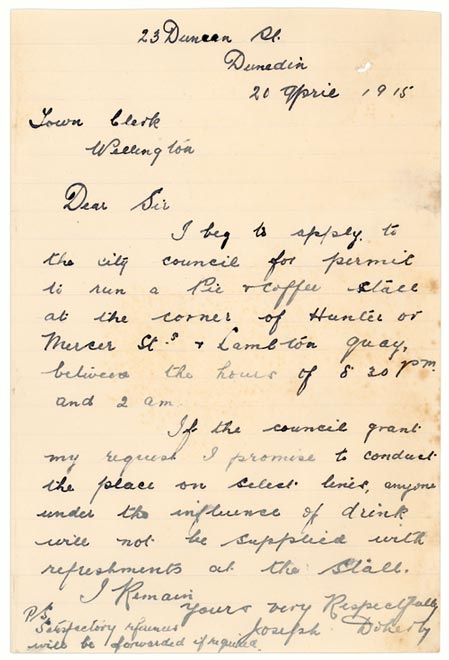 23 Duncan St.
Dunedin
20 April 1915
Town Clerk
Wellington
Dear Sir
I beg to apply to
the city council for permit
to run a Pie & coffee stall
at the corner of Hunter or
Mercer Sts & Lambton quay,
between the hours of 8 30 pm.
and 2 am.
If the council grant
my request I promise to conduct
the place on select lines, anyone
under the influence of drink
will not be supplied with
refreshments at the Stall.
I Remain
yours very Respectfully
Joseph Doherty
P.S.
Satisfactory
will be forwarded if required.